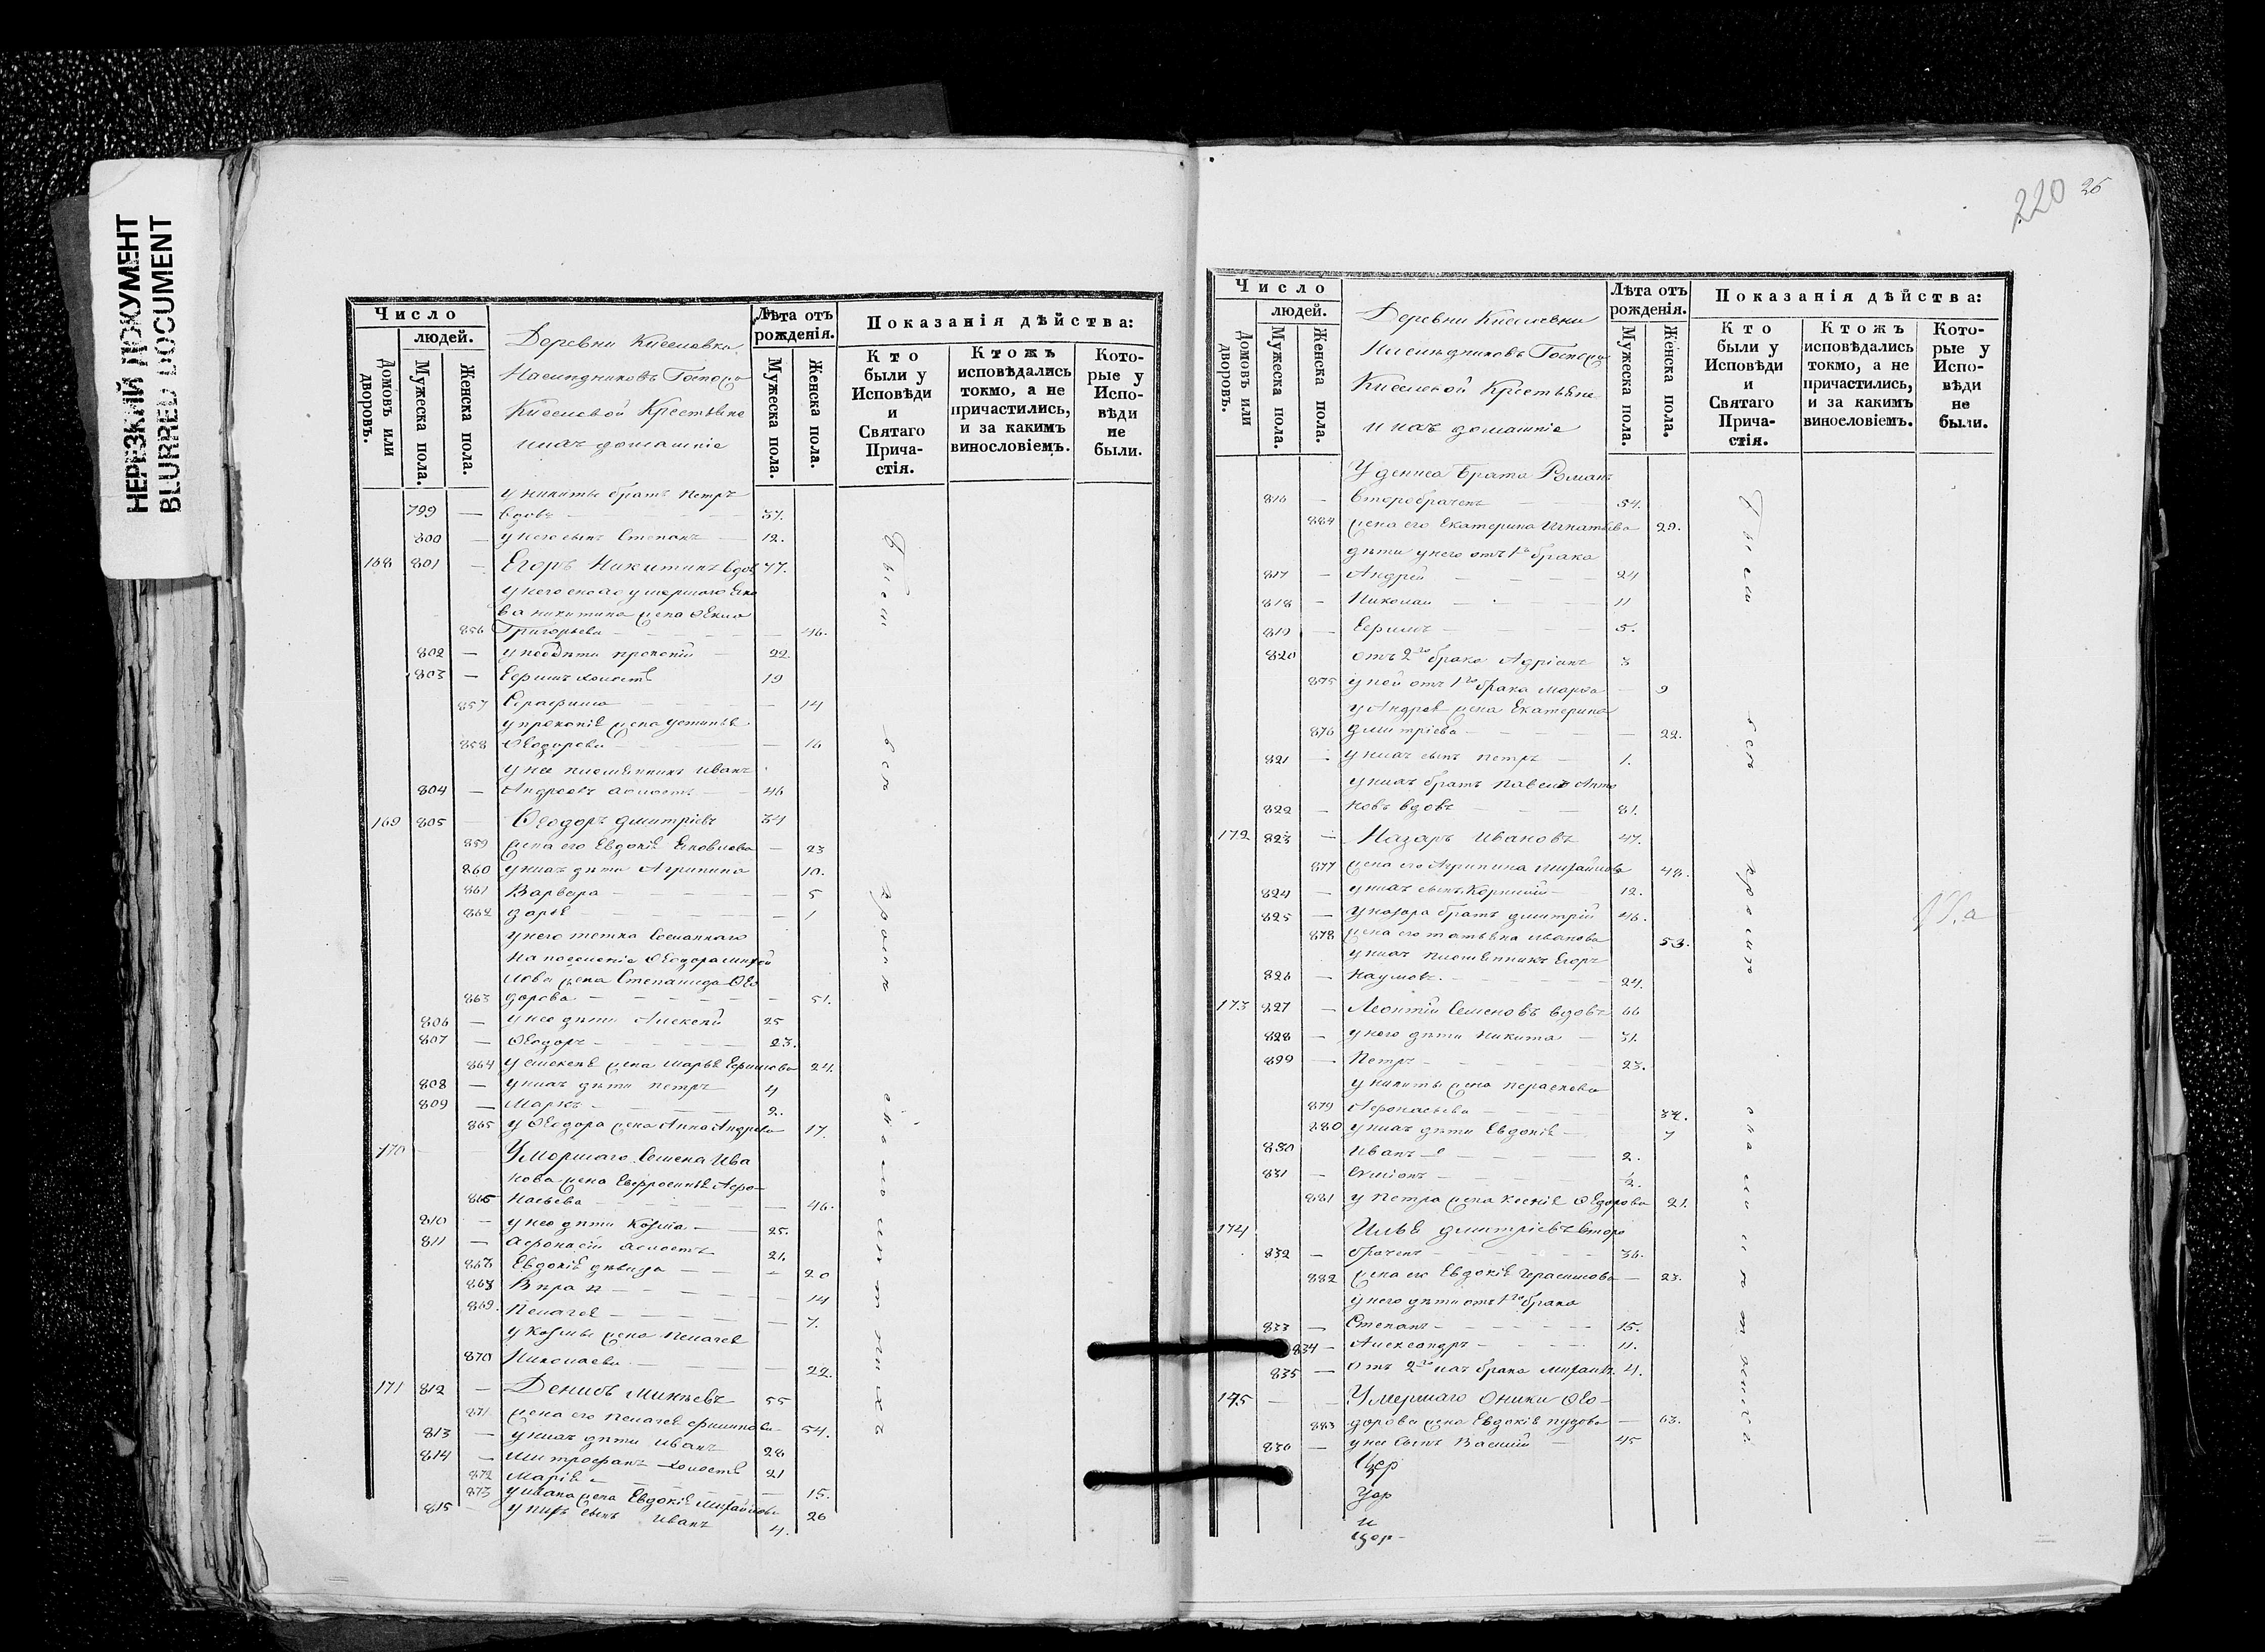 НЕРЕЗКИЙ ДОКУМЕНТ
BLURRED DOCUMENT
Число
людей.
Домовъ или дворовъ.
Мужеска пола.
Женска пола.
Деревни Киселовки
Наследниковъ Госпожи
Киселевой Крестьяне
и ихъ домашніе
Лѣта отъ рожденія.
Мужеска пола.
Женска пола.
Показанія дѣйства:
Кто были у Исповѣди и Святаго Причастія.
Ктожъ исповѣдались токмо, а не причастились, и за какимъ винословіемъ.
Которые у Исповѣди не были.
у никиты братъ петръ
799 — вдовъ — 37.
800 — у него сынъ Степанъ — 12.
168 801 — Егоръ Никитинъ вдов 47.
у него снохо умершаго Яко
ва никитина жена Ѳекла
856 Григорьева — 46.
802 — у нее дѣти прокопій — 22
803 — Ефимъ холостъ 19
857 Серафима — 14
у прокопіѣ жена устиньѣ
858 Ѳеодорова — 16
у нее племѣнникъ иванъ
804 — Андреевъ холостъ — 46
169 805 — Ѳеодоръ дмитріевъ 34
859 жена его Евдокіѣ Яковлева — 23
860 у нихъ дѣти Агрипина 10.
861 Варвара — 5
862 дарьѣ — 1
у него тетка Сосланнаго
на поселеніе Ѳеодора михай
лова жена Степанида Ѳео
863 дорова — 51.
806 — у нее дѣти Алексѣй 25
807 — Ѳеодоръ — 23.
864 у алексѣѣ жена марьѣ Ефимова 24.
808 — у нихъ дѣти петръ 4
809 — Маркъ — 2.
865 у Ѳеодора жена Анна Андрева 17.
170 Умершаго Семена Ива
нова жена Евфросиньѣ Афо-
866 насьева — 46.
810 — у нее дѣти Козма — 25.
811 — афонасій холостъ 21.
867 Евдокіѣ дѣвица — 20
868 Вѣра — 14
869. Пелагеѣ — 7.
у Козмы жена Пелагеѣ
870 Николаева — 22.
171 812 — Денисъ Микѣевъ 55
871 жена его Пелагеѣ филипова 54.
813 — у нихъ дѣти иванъ 28
814 — митрофанъ — холостъ 21
872 Маріѣ — 15.
873 у ивана жена Евдокіѣ Михайлова 26
815 — у нихъ сынъ иванъ 4.
Были
всѣ
кромѣ
220 26
Число
людей.
Домовъ или дворовъ.
Мужеска пола.
Женска пола.
Деревни Киселовки
Наследниковъ Госпожи
Киселевой Крестьяне
и ихъ домашніе
Лѣта отъ рожденія.
Мужеска пола.
Женска пола.
Показанія дѣйства:
Кто были у Исповѣди и Святаго Причастія.
Ктожъ исповѣдались токмо, а не причастились, и за какимъ винословіемъ.
Которые у Исповѣди не были.
У дениса брата Романъ
816 — второбраченъ — 54.
884 жена его Екатерина Игнатьева 29.
дѣти у него отъ 1го брака
817 — Андрей — 24
818 — Николай — 11
819 — Ефимъ — 5.
820 отъ 2го брака Адріанъ 3
875 у ней отъ 1го брака марѳа — 9
у Андреѣ жена Екатерина
876 дмитріева — 22.
821 — у нихъ сынъ петръ — 1.
у нихъ братъ павелъ Анто
822 — новъ вдовъ — 81.
172 823 — Назаръ Ивановъ 47.
877 жена его Агрипина михайлова 48.
824 — у нихъ сынъ Корнилій — 12.
825 — у назара братъ дмитрій 46.
878 жена его татьѣна иванова 53.
у нихъ племѣнникъ Егоръ
826 — наумовъ. — 24.
173 827 — Леонтій Семеновъ вдовъ 66
828 — у него дѣти никита — 31.
899 — Петръ — 23.
у никиты жена параскева
879 Афонасьева — 34.
880 у нихъ дѣти Евдокіѣ — 7
830 иванъ — 2.
831 — Симіонъ — 1/2.
881 у петра жена ксеніѣ Ѳедорова 21.
174 Ильѣ дмитріевъ второ
832 — браченъ — 36.
882 жена его Евдокіѣ Герасимова — 23.
у него дѣти отъ 1го брака
833 — Степанъ — 15.
834 — Александръ — 11.
835 — отъ 2го ихъ брака михаилъ 4.
175 — — Умершаго Оники Ѳео-
883 дорова жена Евдокіѣ пудова — 63.
836 — у нее сынъ Василій — 45
и
Были
всѣ
кромѣ